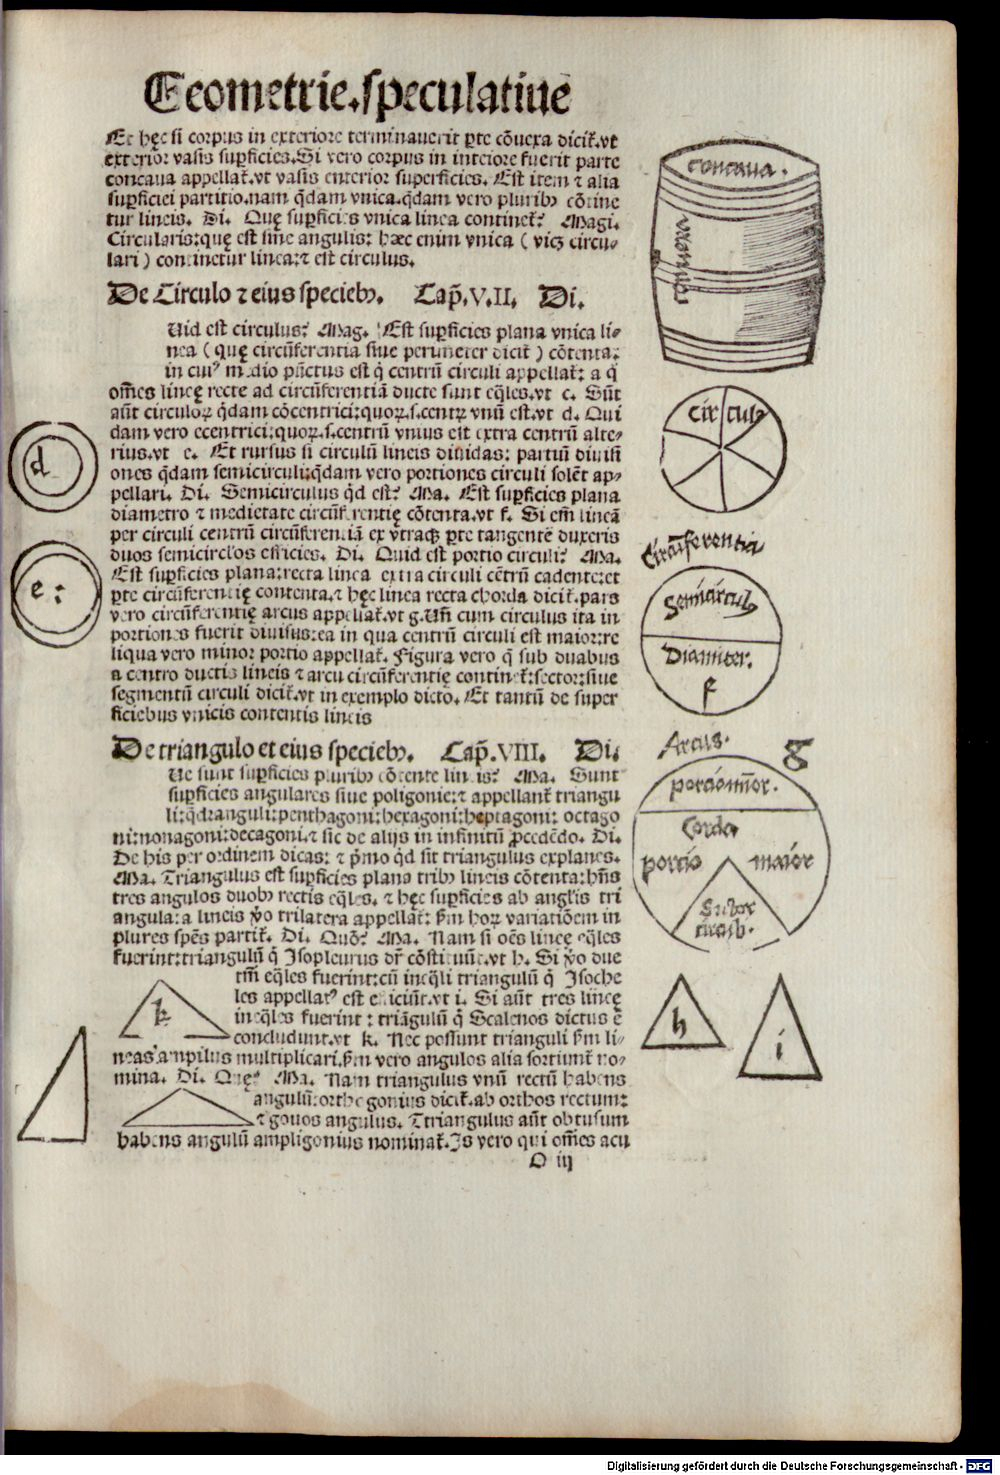 Geometrie speculatiue
Et hęc si corpus in exteriore terminauerit ꝑte cōuexa diciť. vt
exterior vasis suꝑficies. Si vero corpus in inteiore fuerit parte
concaua appellať. vt vasis enterior superficies. Est item ⁊ alia
suꝑficiei partitio. nam q̄dam vnica. q̄dam vero pluribꝰ cōtine
tur lineis. Di. Quę suꝑficies vnica linea contineť? Magi.
Circularis: quę est sine angulis: hæc enim vnica (vicꝫ circu-
lari) continetur linea: ⁊ est circulus.
De Circulo ⁊ eius speciebꝰ. Cap̄. V.II. Di.
Uid est circulus? Mag. Est suꝑficies plana vnica li-
nea (quę circūferentia siue perimeter diciť) cōtenta:
in cuiꝰ medio pūctus est q̄ centrū circuli appellať: a q̄
om̄es linęę recte ad circūferentiā ducte sunt eq̄les. vt c. Sūt
aūt circuloꝝ q̄dam cōcentrici: quoꝝ. s. centꝝ vnū est. vt d. Qui
dam vero ecentrici: quoꝝ. s. centrū vnius est extra centrū alte-
rius. vt e. Et rursus si circulū lineis diuidas: partiū diuisi
ones q̄dam semicirculi: q̄dam vero portiones circuli solēt ap-
pellari. Di. Semicirculus q̄d est? Ma. Est suꝑficies plana
diametro ⁊ medietate circūferentię cōtenta. vt f. Si em̄ lineā
per circuli centrū circūferentiā ex vtraqꝫ ꝑte tangentē duxeris
duos semicirclos efficies. Di. Quid est portio circuli? Ma.
Est suꝑficies plana: recta linea extra circuli cētrū cadente: et
ꝑte circūferentię contenta. ⁊ hęc linea recta chorda diciť. pars
vero circūferentię arcus appellať. vt g. Uñ cum circulus ita in
portiones fuerit diuisus: ea in qua centrū circuli est maior: re
liqua vero minor portio appellať. Figura vero q̄ sub duabus
a centro ductis lineis ⁊ arcu circūferentię contineť: sector: siue
segmentū circuli diciť. vt in exemplo dicto. Et tantū de super
ficiebus vnicis contentis lineis
De triangulo et eius speciebꝰ. Cap̄. VIII. Di.
Ue sunt suꝑficies pluribꝰ cōtente lineis? Ma. Sunt
suꝑficies angulares siue poligonie: ⁊ appellanť triangu
li: q̄dranguli: penthagoni: hexagoni: heptagoni: octago
ni: nonagoni: decagoni. ⁊ sic de alijs in infinitū ꝓcedēdo. Di.
De his per ordinem dicas: ⁊ p̄mo q̄d sit triangulus explanes.
Ma. Triangulus est suꝑficies plana tribꝰ lineis cōtenta: hñs
tres angulos duobꝰ rectis eq̄les. ⁊ hęc suꝑficies ab anglis tri
angula: a lineis v̊o trilatera appellať: ẜm hoꝝ variatiōem in
plures spēs partiť. Di. Quō? Ma. Nam si oēs linęę eq̄les
fuerint: triangulū q̄ Isopleurus dr̄ cōstituūt. vt h. Si v̊o due
tm̄ eq̄les fuerint: cū ineq̄li triangulū q̄ Isoche
les appellatꝰ est efficiūt. vt i. Si aūt tres linęę
ineq̄les fuerint: triāgulū q̄ Scalenos dictus ē
concludunt. vt k. Nec possunt trianguli ẜm li-
neas amplius multiplicari. ẜm vero angulos alia sortiunť no-
mina. Di. Quę? Ma. Nam triangulus vnū rectū habens
angulū: orthogonius diciť. ab orthos rectum:
⁊ gonos angulus. Ttriangulus aūt obtusum
habens angulū ampligonius nominať. Is vero qui om̄es acu
O iij
concaua.
conuexa
Circulꝰ
Circūferentia
Semicirculꝰ
Diameter.
f
Arcus.
g
porcio mīor.
Corda
porcio maior
Sector
circuli.
h
i
d
e:
k
Digitalisierung gefördert durch die Deutsche Forschungsgemeinschaft - DFG